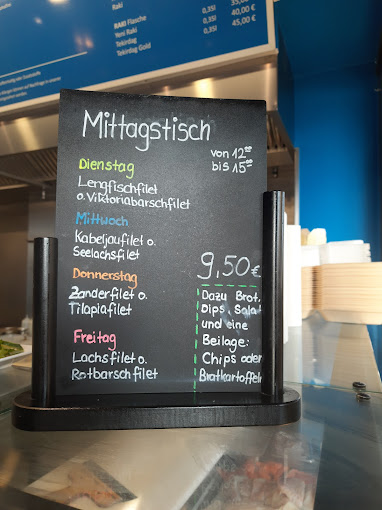 Raki
RAKI Flasche
Yeni Raki 0,35l 40,00 €
Tekirdag 0,35l 45,00 €
Tekirdag Gold 0,35l
Mittagstisch
von 12⁰⁰
bis 15⁰⁰
Dienstag
Lengfischfilet
o. Viktoriabarschfilet
Mittwoch
Kabeljaufilet o.
Seelachsfilet
Donnerstag
Zanderfilet o.
Tilapiafilet
Freitag
Lachsfilet o.
Rotbarschfilet
9,50€
Dazu Brot,
Dips, Salat
und eine
Beilage:
Chips oder
Bratkartoffeln